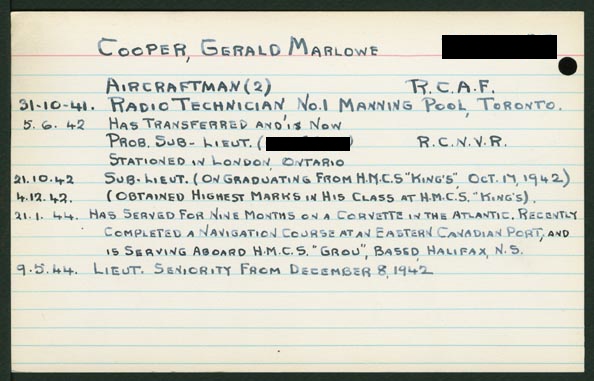 COOPER, GERALD MARLOWE
AIRCRAFTMAN (2) R.C.A.F.
31-10-41. RADIO TECHNICIAN NO.1 MANNING POOL, TORONTO.
5.6.42 HAS TRANSFERRED AND IS NOW
PROB. SUB-LIEUT. ( ) R.C.N.V.R.
STATIONED IN LONDON, ONTARIO
21.10.42 SUB-LIEUT. (ON GRADUATING FROM H.M.C.S "KING'S", OCT. 17, 1942)
4.12.42. (OBTAINED HIGHEST MARKS IN HIS CLASS AT H.M.C.S. "KING'S).
21.1.44. HAS SERVED FOR NINE MONTHS ON A CORVETTE IN THE ATLANTIC. RECENTLY
COMPLETED A NAVIGATION COURSE AT AN EASTERN CANADIAN PORT, AND
IS SERVING ABOARD H.M.C.S. "GROU", BASED, HALIFAX, N.S.
9.5.44. LIEUT. SENIORITY FROM DECEMBER 8, 1942